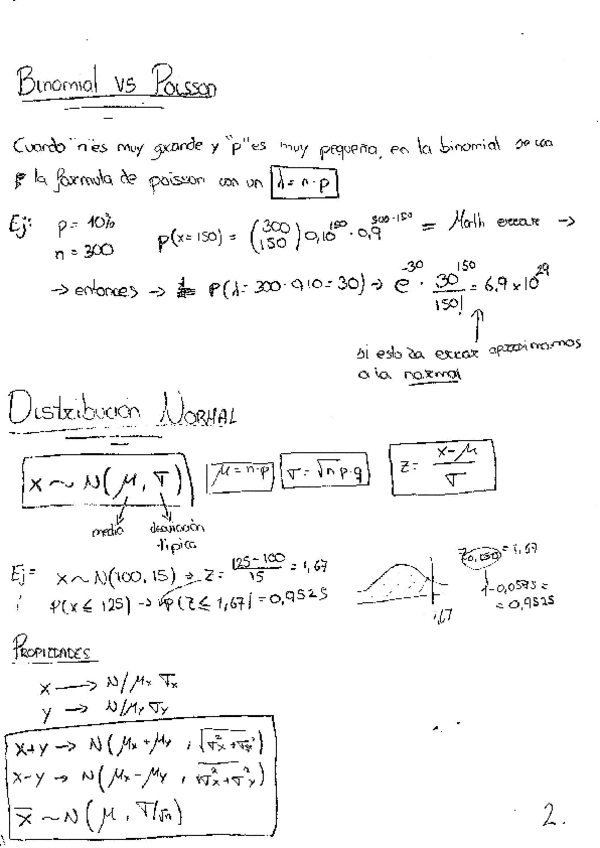 Binomial vs Poisson
Cuando "n" es muy grande y "p" es muy pequeña, en la binomial se usa
la formula de poisson con un λ = n·p
Ej: p = 10%
n = 300
p(x=150) = (300 150) 0,10^150 · 0,9^300-150 = Math error →
→ entonces → P(λ = 300 · 0,10 = 30) → e^-30 · 30^150 / 150! = 6,9 x 10^29
si esto da error aproximamos
a la normal
Distribución NORMAL
X ~ N(μ, σ) μ = n·p σ = √n·p·q z = x-μ / σ
media desviación
típica
Ej = X ~ N(100, 15) → z = 125-100 / 15 = 1,67
P(x ≤ 125) → P(z ≤ 1,67) = 0,9525
= 1,67
1-0,0595 =
= 0,9525
1,67
PROPIEDADES
x → N/μx σx
y → N/μy σy
x+y → N(μx + μy, √σ²x + σ²y)
x-y → N(μx - μy, √σ²x + σ²y)
x̄ ~ N(μ, σ/√n)
2.